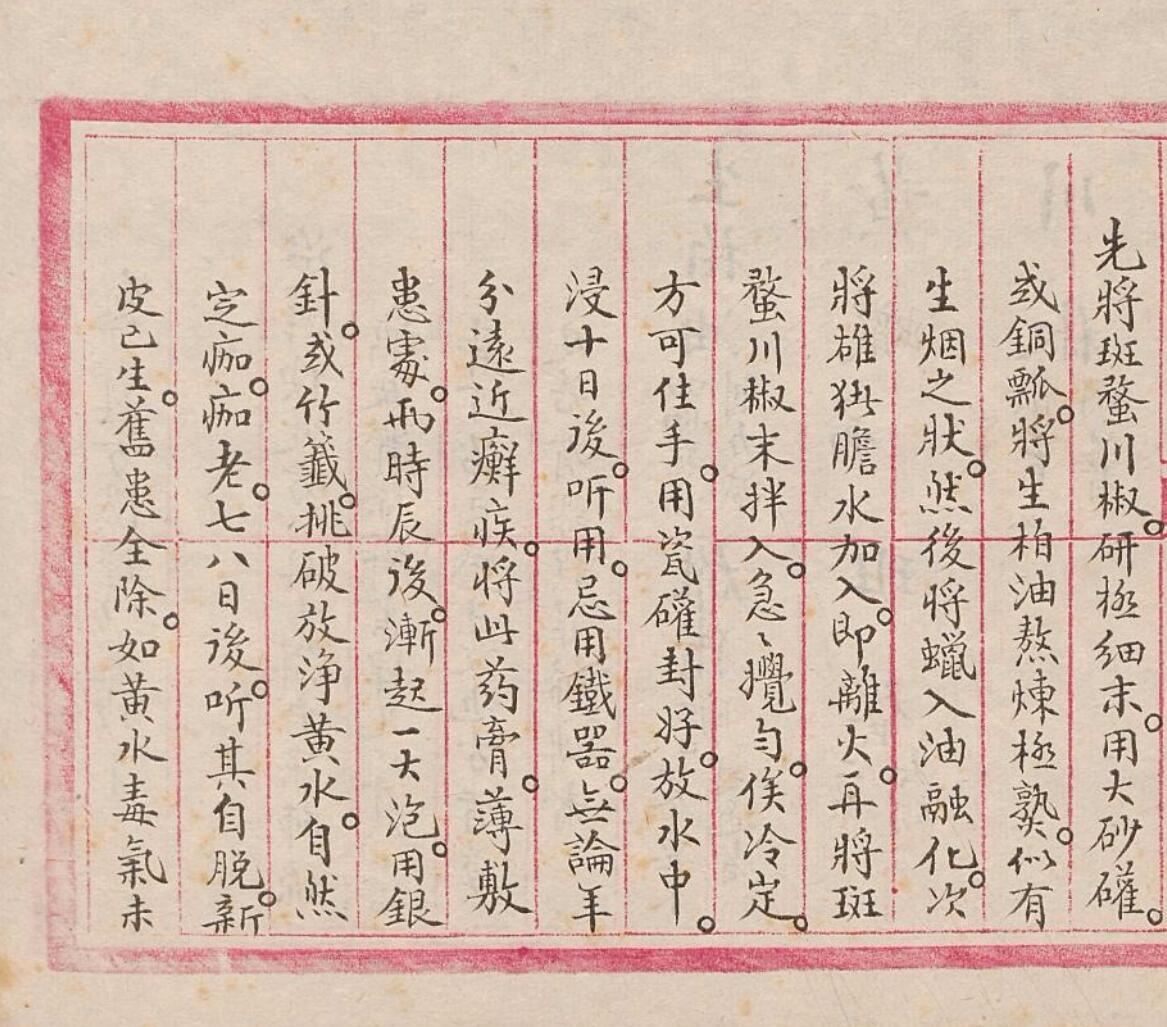 先將斑蝥川椒。研極细末。用大砂礶。
或銅瓢。將生柏油熬煉極熟。似有
生烟之狀。然後將蠟入油融化。次
將雄猪膽水加入。即離火。再將斑
蝥川椒末拌入。急〻攪匀。俟冷定。
方可住手。用瓷礶封好。放水中。
浸十日後。听用。忌用鐵器。無論年
分遠近癬疾。將此药膏。薄敷
患處。兩時辰後。漸起一大泡。用銀
針。或竹籤。挑破放浄黄水。自然
定痂。痂老。七八日後。听其自脱。新
皮已生。舊患全除。如黄水毒氣未